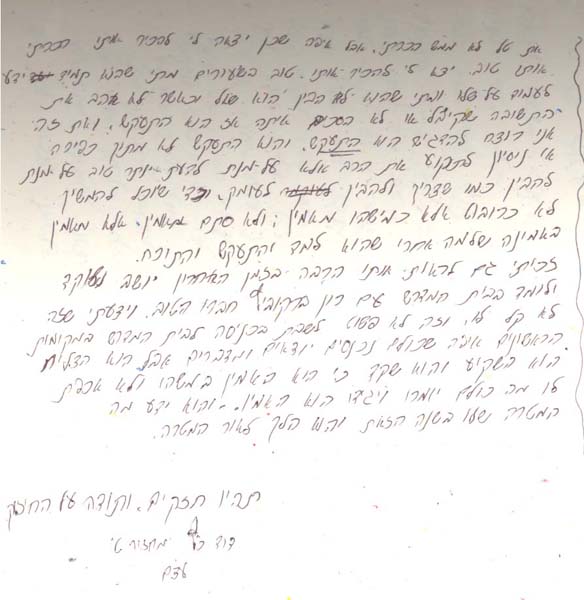 את טל לא ממש הכרתי. אבל איפה שכן יצאה לי להכיר אותו הכרתי
אותו טוב. יצא לי להכיר אותו טוב בשעורים מתי שהוא תמיד ידע
לעמוד על שלו ומתי שהוא לא הבין הוא שאל וכאשר לא אהב את
התשובה שקיבל או לא הסכים איתה אז הוא התעקש. ואת זה
אני רוצה להדגיש הוא התעקש. והוא התעקש לא מתוך כפירה
או נסיון לתקוע את הרב אלא על-מנת לדעת יותר טוב על-מנת
להבין כמו שצריך ולהבין לעומק. וכדי שיוכל להמשיך
לא כרובוט אלא כמישהו מאמין, ולא סתם מאמין. אלא מאמין
באמונה שלמה אחרי שהוא למד והתעקש והתווכח.
זכיתי גם לראות אותו הרבה בזמן האחרון יושב ושוקד
ולומד בבית המדרש עם רון ברקוביץ חברו הטוב. וידעתי שזה
לא קל לו, וזה לא פשוט לשבת בכניסה לבית המדרש במקומות
הראשונים איפה שכולם נכנסים יוצאים ומדברים אבל הוא הצליח
הוא השקיע והוא שקד כי הוא האמין במשהו ולא אכפת
לו מה כולם יומרו ויגידו הוא האמין. והוא ידע מה
המטרה שלו בשנה הזאת והוא הלך לאור המטרה.
תהיו חזקים. ותודה על החיזוק
דוד כץ מחזור ט'
עצם